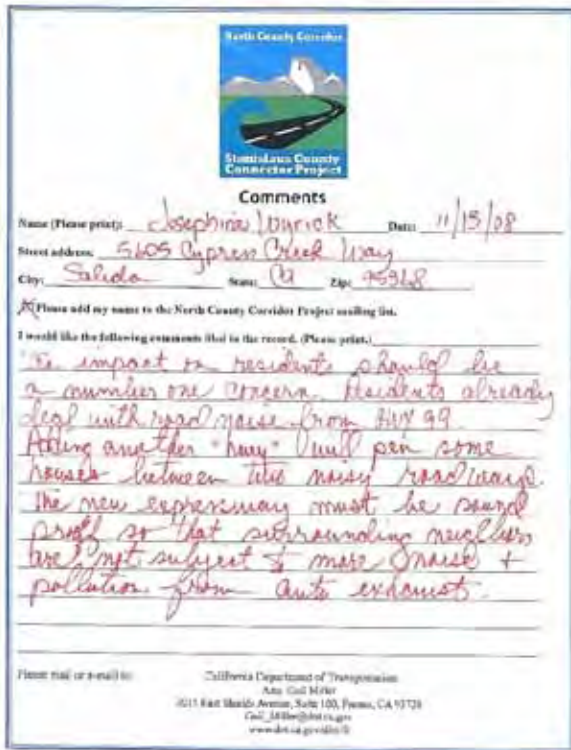 North County Corridor
Stanislaus County
Connector Project
Comments
Name (Please print): Josephine Wyrick Date: 11/15/08
Street address: 5605 Cypress Creek Way
City: Salida State: Ca Zip: 95368
Please add my name to the North County Corridor Project mailing list.
I would like the following comments filed in the record. (Please print.)
The impact on residents should be
a number one concern. Residents already
deal with road noise from HWY 99.
Adding another "hwy" will pen some
houses between two noisy roadways.
The new expressway must be sound
proof so that surrounding neighbors
are not subject to more noise +
pollution from auto exhaust.
Please mail or e-mail to: California Department of Transportation
Attn: Gail Miller
2015 East Shields Avenue, Suite 100, Fresno, CA 93726
Gail_Miller@dot.ca.gov